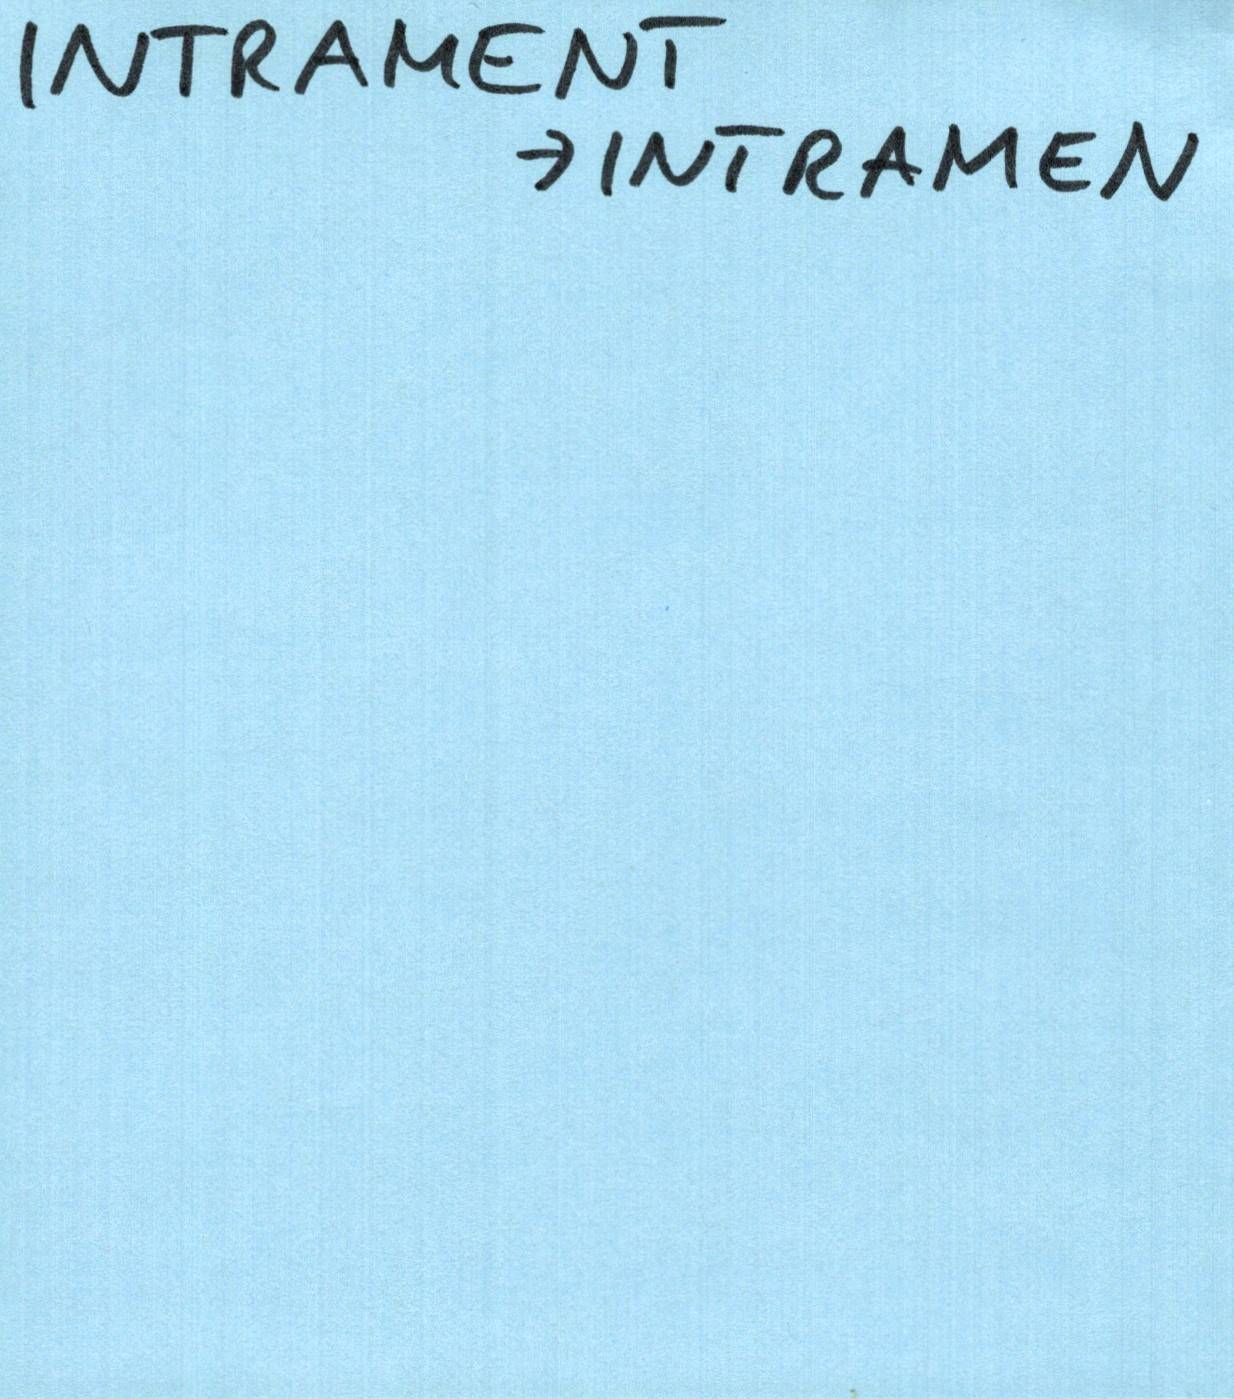 INTRAMENT
→INTRAMEN